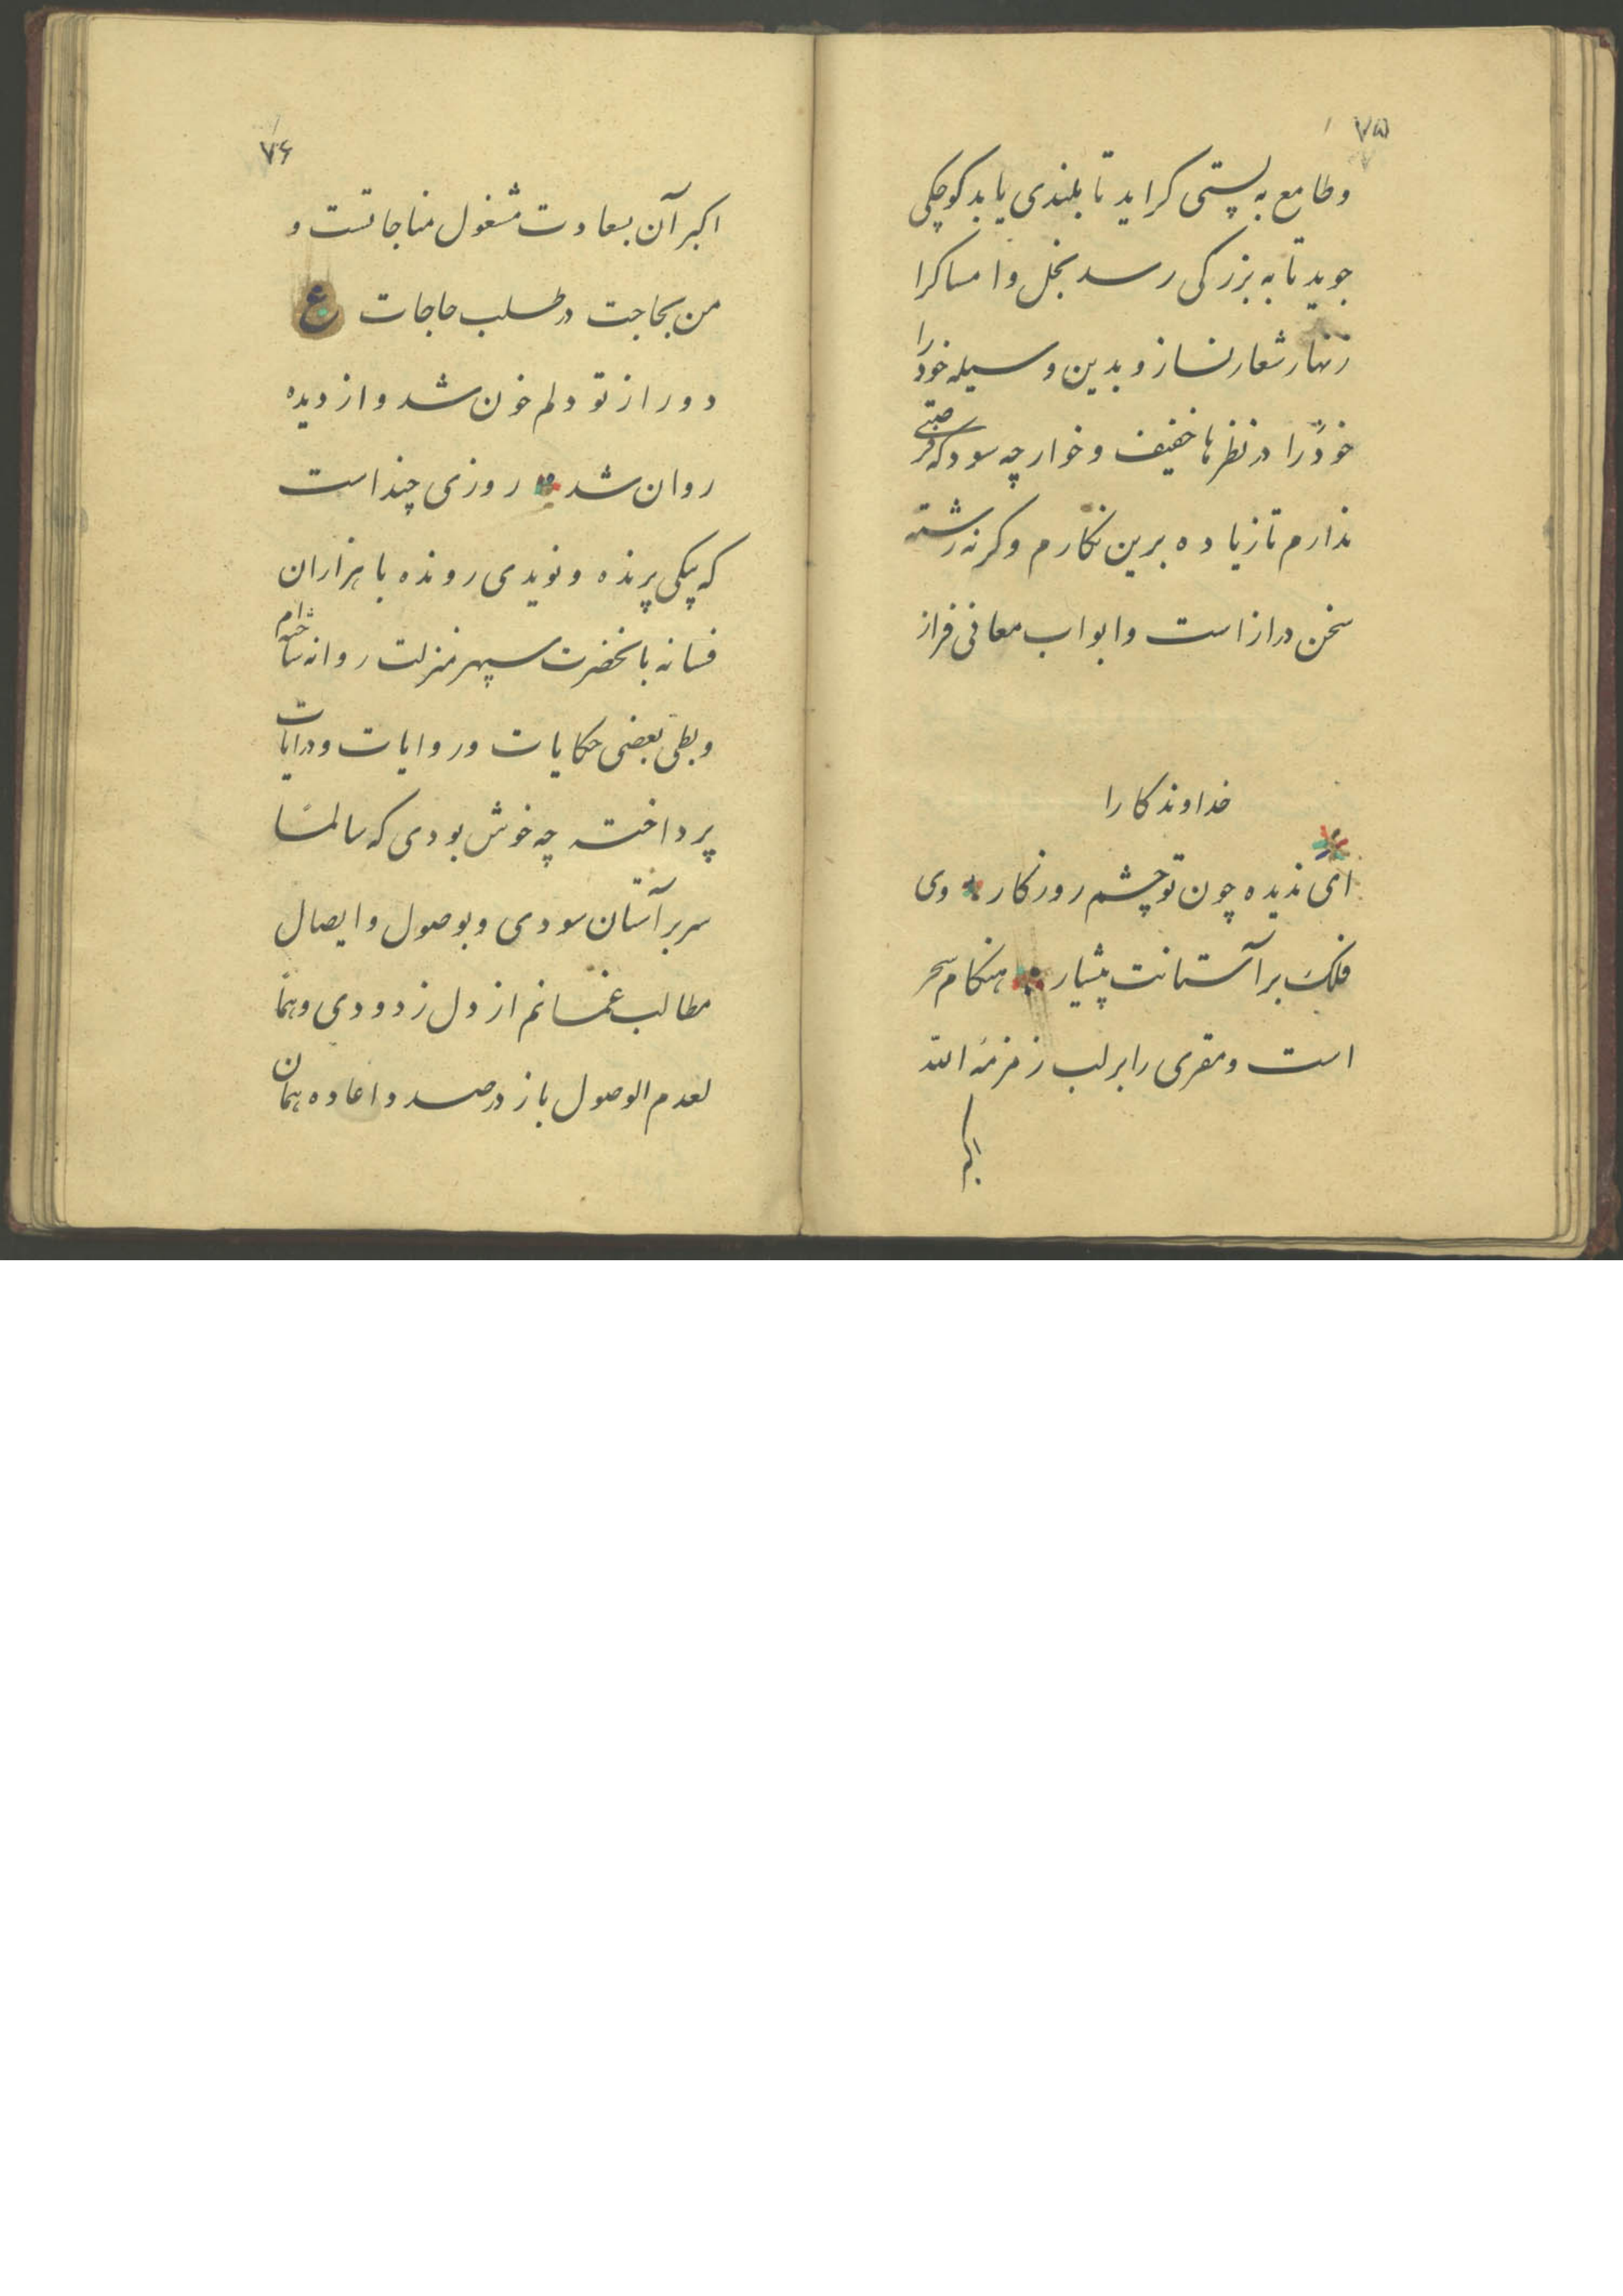 ۷۵
وطامع به پستی کراید تا بلندی یابد کوچکی
جوید تا به بزرکی رسد بخل و امساکرا
زنهار شعار نساز و بدین وسیله خود را
خود را در نظرها خفیف و خوار چه سود که فرصتی
ندارم تا زیاده برین نکارم و کرنه رشته
سخن دراز است و ابواب معانی فراز
خداوندکارا
ای ندیده چون تو چشم روزکار وی
فلک بر آستانت پیشیار هنکام سحر
است و مقری را بر لب زمزمهٔ الله
اکبر
۷۶
اکبر آن بسعادت مشغول مناجاتست و
من بحاجت در طلب حاجات ع
دور از تو دلم خون شد و از دیده
روان شد روزی چند است
که پیکی پرنده و نویدی رونده با هزاران
فسانه بانحضرت سپهر منزلت روانه ساخته‌ام
و بطی بعضی حکایات و روایات و درایات
پرداخته چه خوش بودی که سالمًا
سر بر آستان سودی و بوصول و ایصال
مطالب غمانم از دل زدودی و همًا
لعدم الوصول باز در صدد اعاده همان